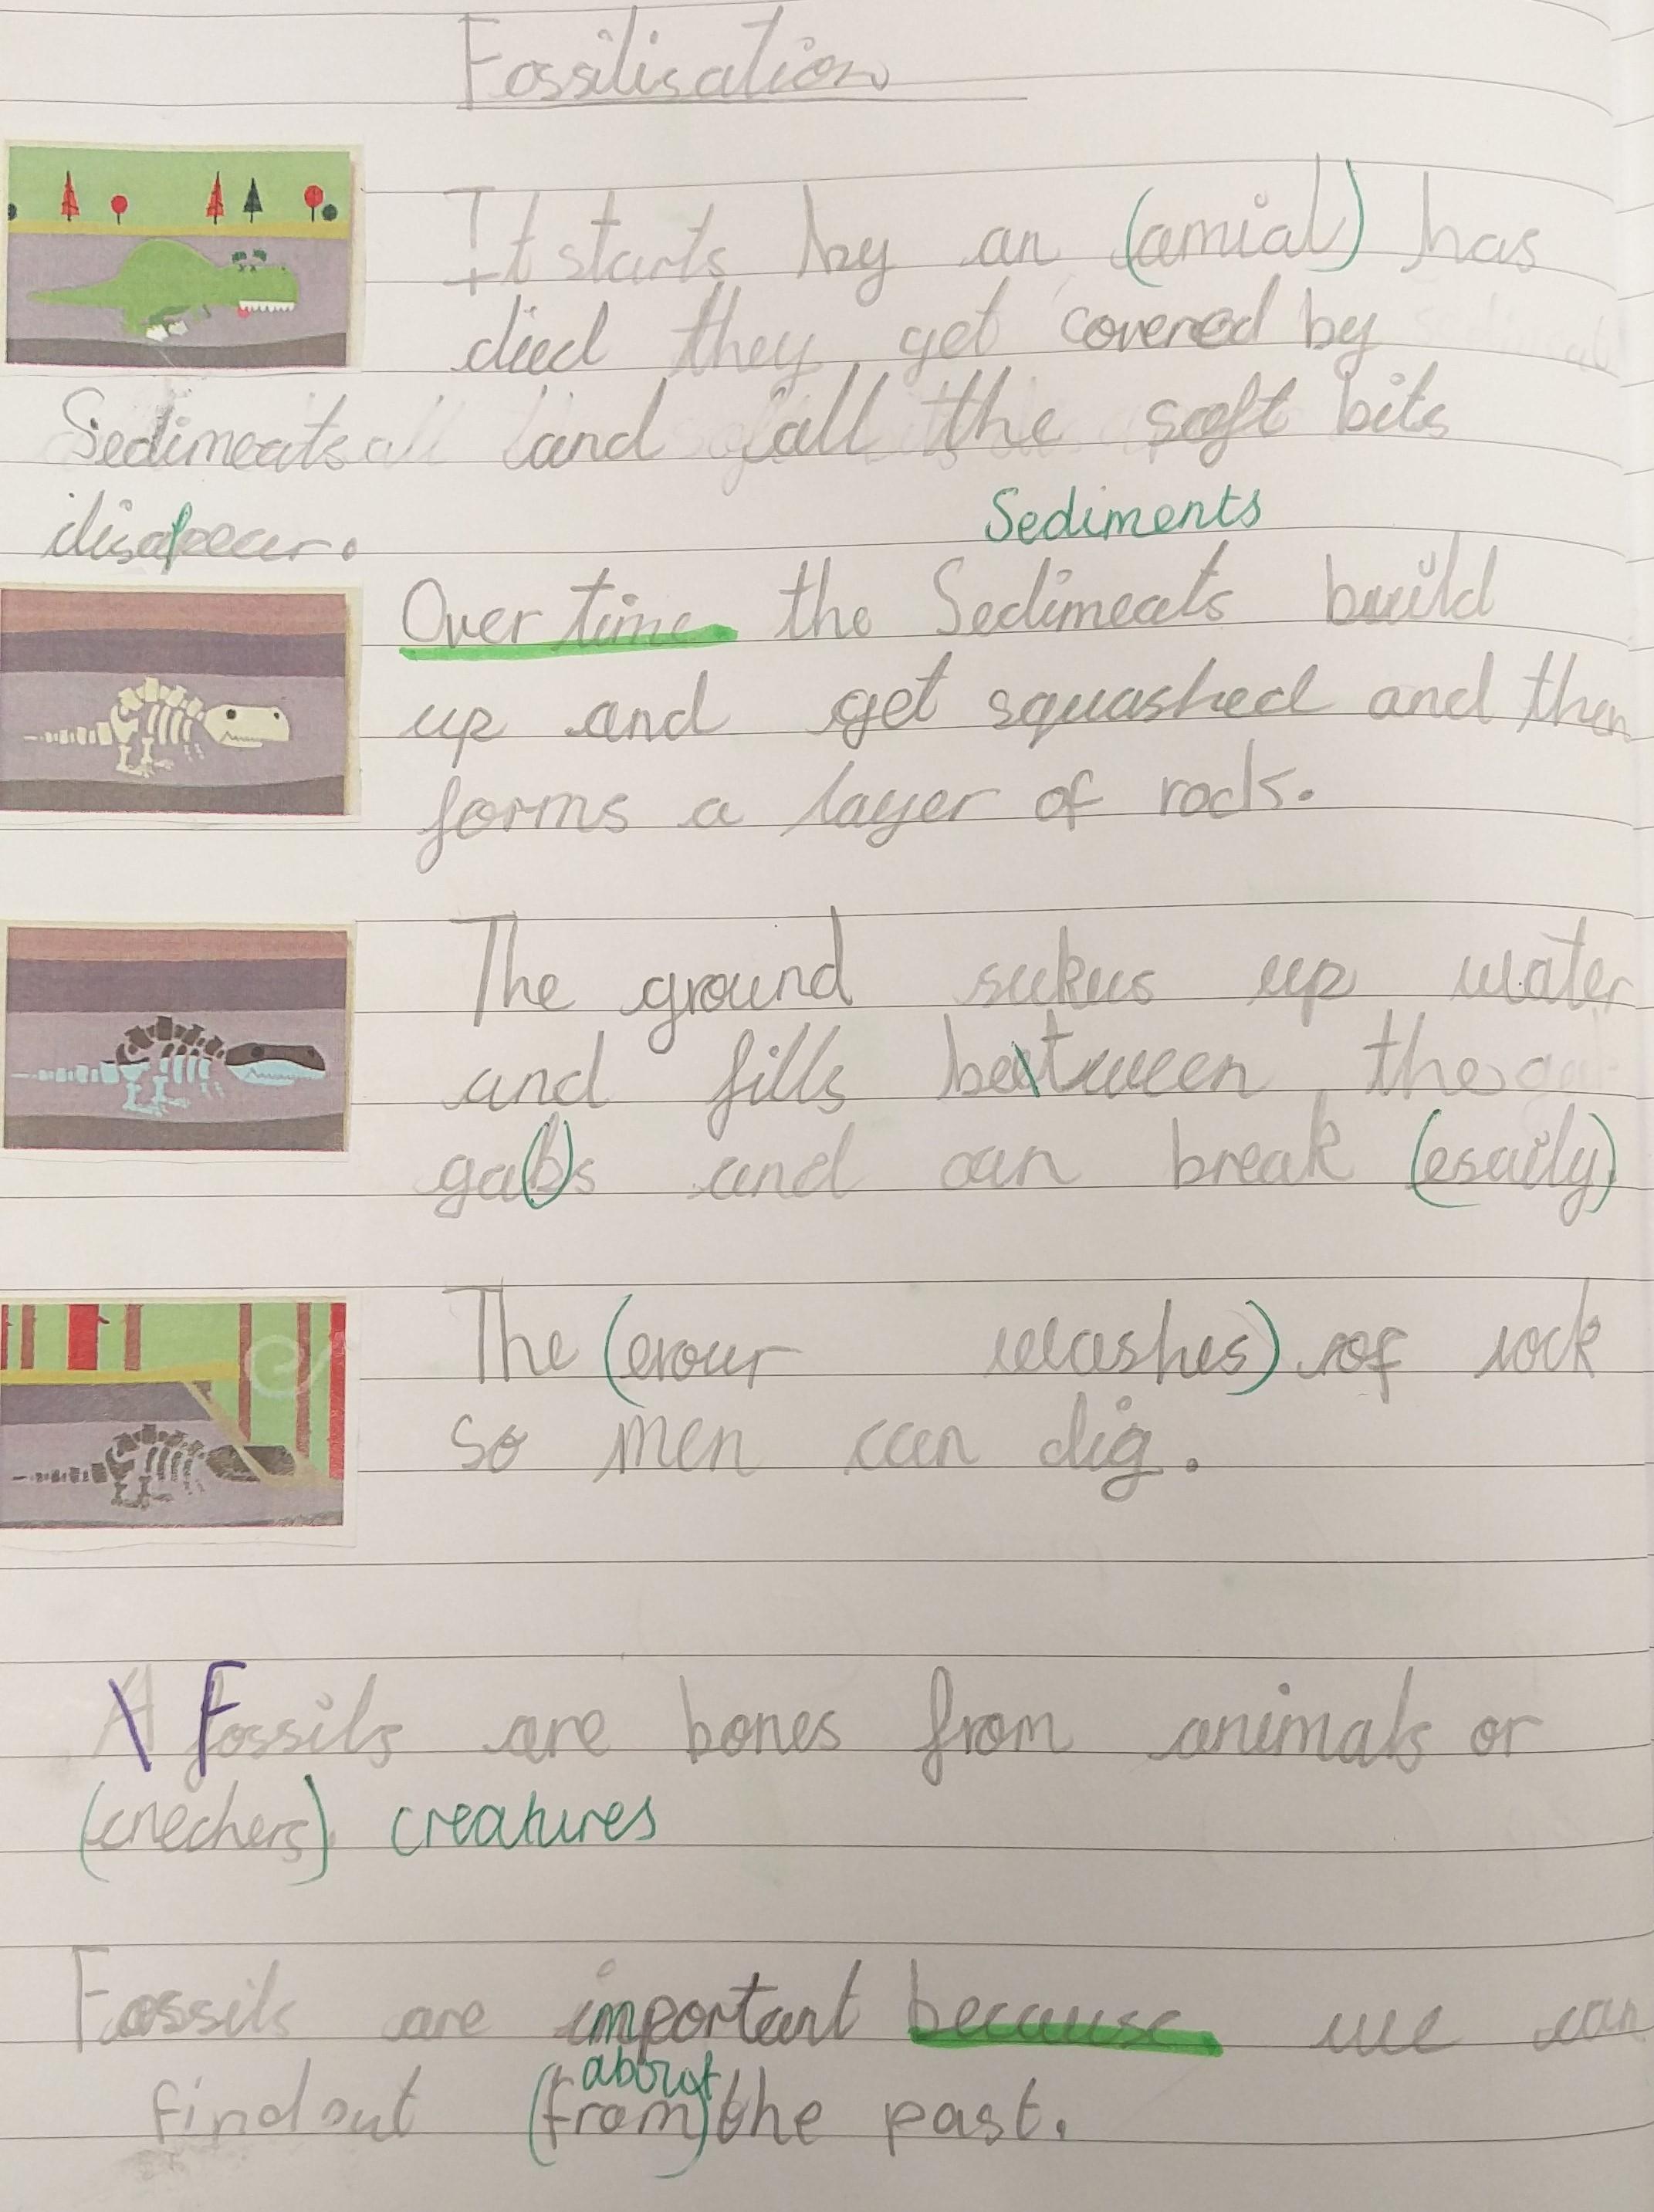 Fossilisation
It starts by an (amial) has
died they get covered by
Sedimeats and all the soft bits
disapeear.
Sediments
Over time the Sedimeats build
up and get squashed and then
forms a layer of rock.
The ground sukus up water
and fills beatween the
gabs and can break (esaily)
The (erour washes) of rock
so men can dig.
A Fossils are bones from animals or
(crechers) creatures
Fossils are important because we can
about
find out (from) the past.